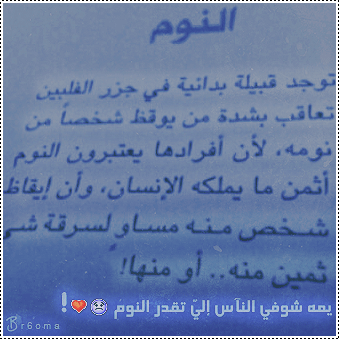 النوم
توجد قبيلة بدائية في جزر الفلبين
تعاقب بشدة من يوقظ شخصاً من
نومه، لأن أفرادها يعتبرون النوم
أثمن ما يملكه الإنسان، وأن إيقاظ
شخص منه مساوٍ لسرقة شي
ثمين منه.. أو منها!
يمه شوفي النآس إليّ تقدر النوم !
Br6oma